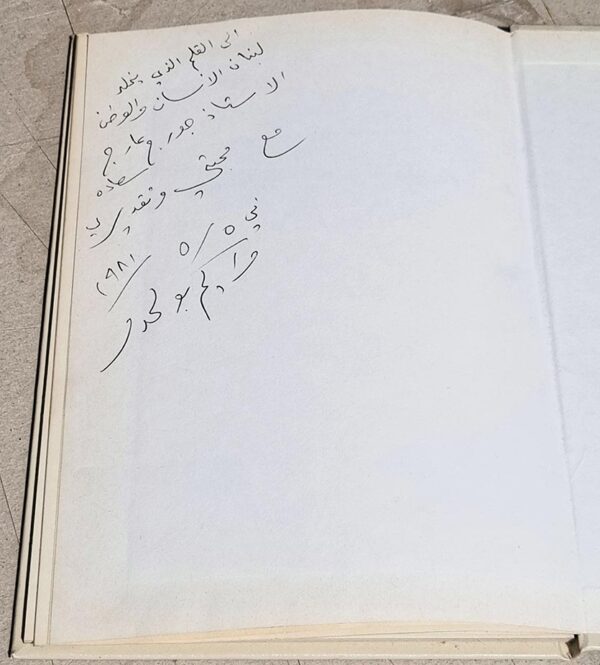 الى القلم الذي يخلد
لبنان الانسان والوطن
الاستاذ جورج عارج
سعاده
مع محبتي وتقديري
في ٥/٥/١٩٨١